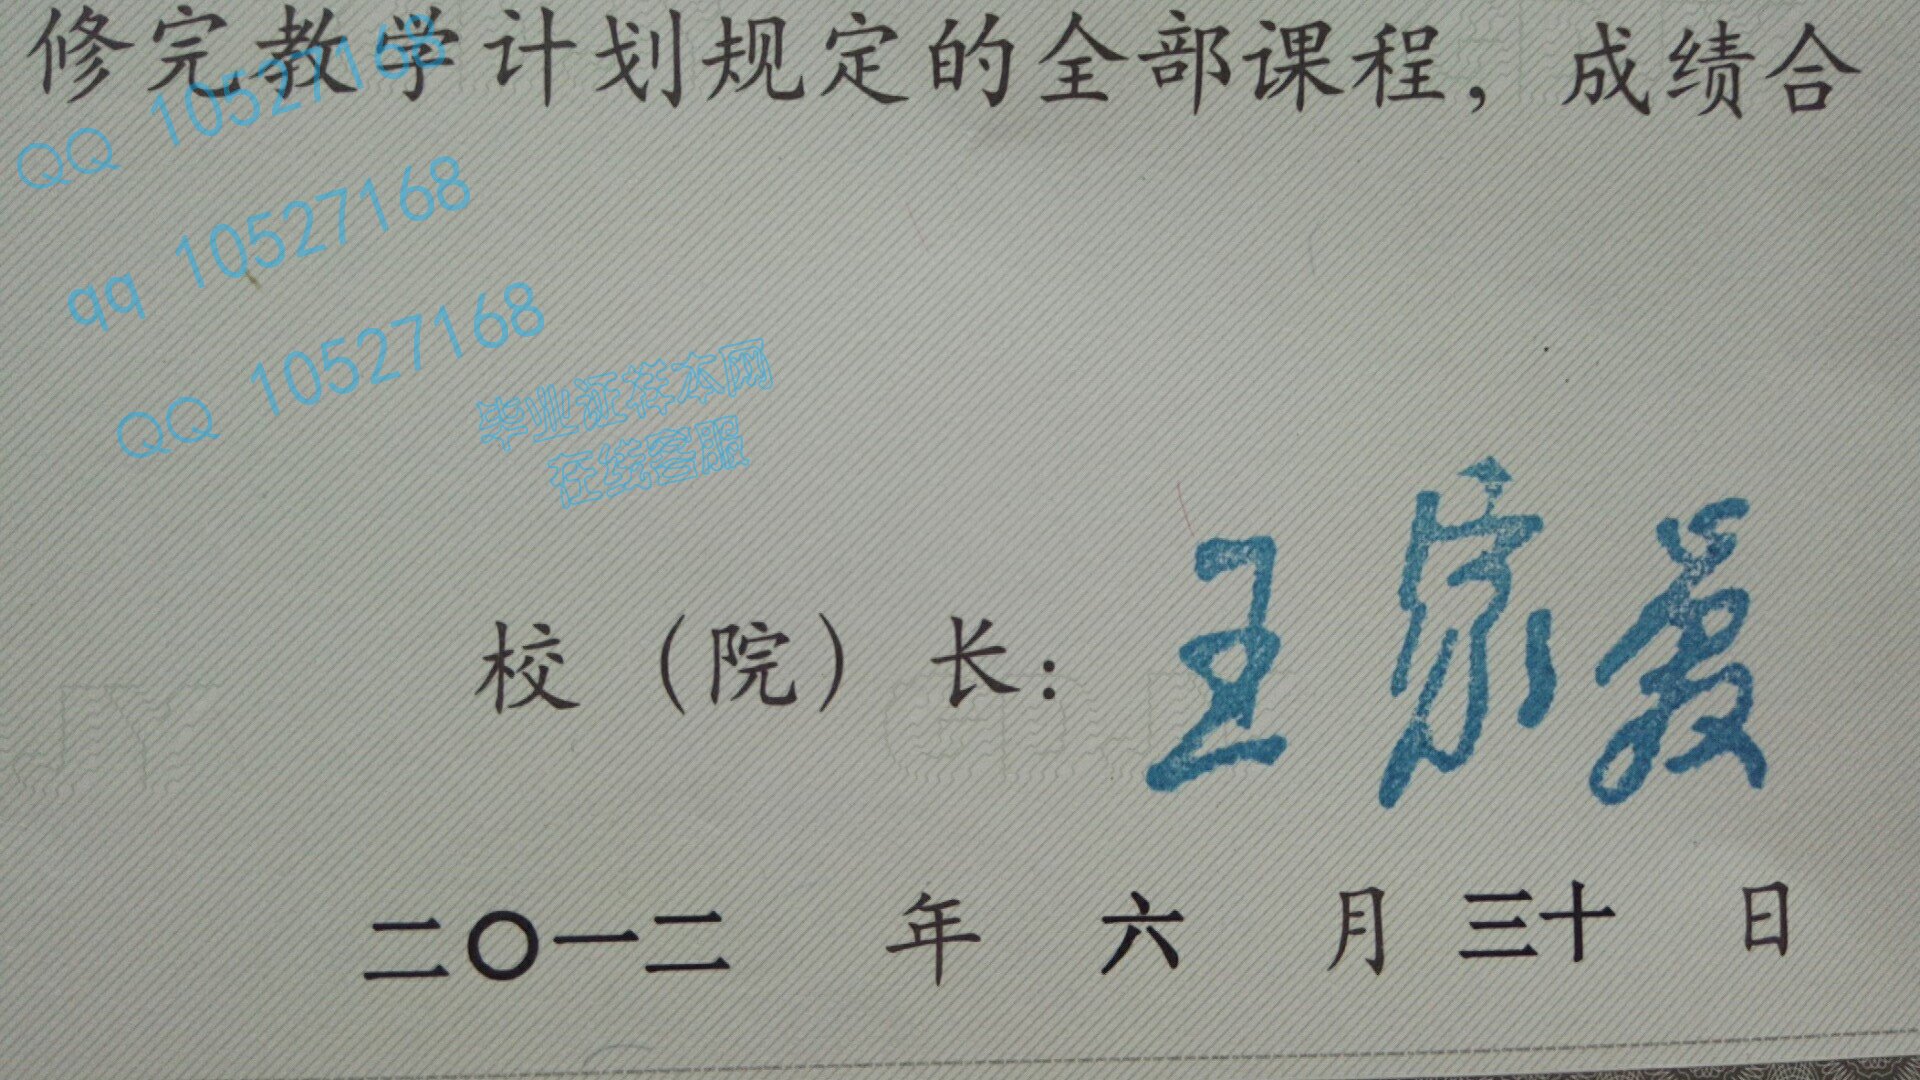 修完教学计划规定的全部课程，成绩合
QQ 10527168
qq 10527168
QQ 10527168
毕业证样本网
在线客服
校（院）长：王家爱
二〇一二 年 六 月 三十 日